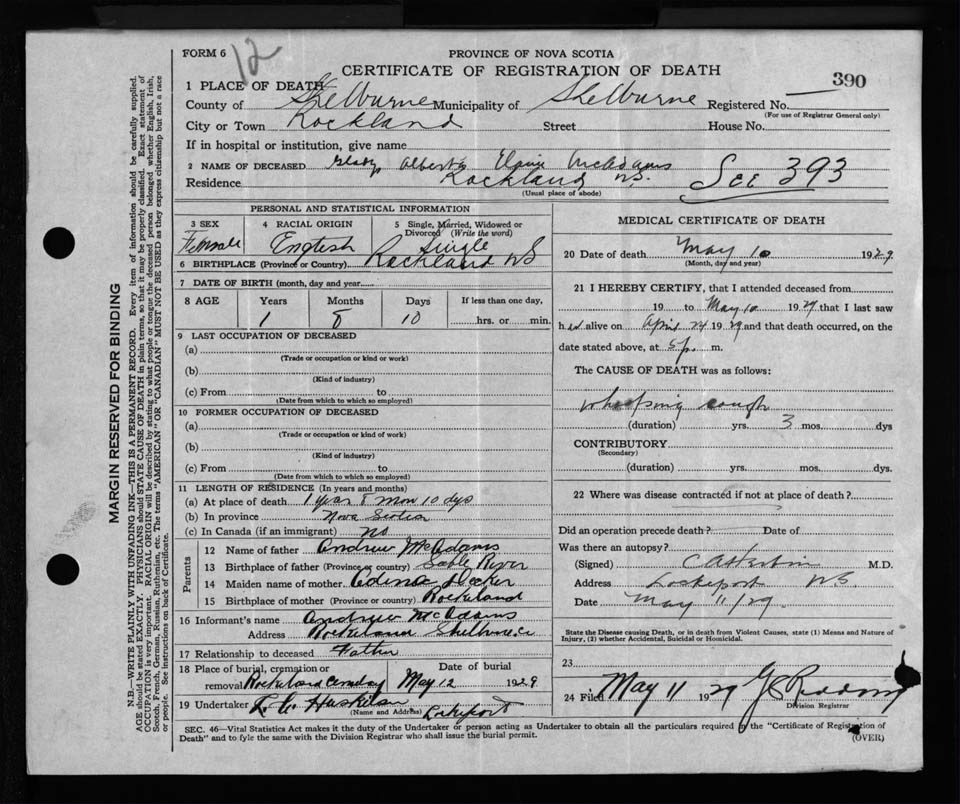 FORM 6
12
PROVINCE OF NOVA SCOTIA
CERTIFICATE OF REGISTRATION OF DEATH
390
1 PLACE OF DEATH
County of Shelburne Municipality of Shelburne Registered No.
(For use of Registrar General only)
City or Town Rockland Street House No.
If in hospital or institution, give name
2 NAME OF DECEASED Alberta McAdams
Residence Rockland NS. See 393
(Usual place of abode)
PERSONAL AND STATISTICAL INFORMATION
3 SEX 4 RACIAL ORIGIN 5 Single, Married, Widowed or
Divorced (Write the word)
Female English Single
6 BIRTHPLACE (Province or Country) Rockland NS
7 DATE OF BIRTH (month, day and year)
8 AGE Years Months Days If less than one day,
1 8 10 hrs. or min.
9 LAST OCCUPATION OF DECEASED
(a)
(Trade or occupation or kind or work)
(b)
(Kind of industry)
(c) From to
(Date from which to which so employed)
10 FORMER OCCUPATION OF DECEASED
(a)
(Trade or occupation or kind of work)
(b)
(Kind of industry)
(c) From to
(Date from which to which so employed)
11 LENGTH OF RESIDENCE (In years and months)
(a) At place of death 1 year 8 mon 10 dys
(b) In province Nova Scotia
(c) In Canada (if an immigrant) no
Parents
12 Name of father Andrew McAdams
13 Birthplace of father (Province or country) Sable River
14 Maiden name of mother Edina Decker
15 Birthplace of mother (Province or country) Rockland
16 Informant's name Andrew McAdams
Address Rockland Shelburne
17 Relationship to deceased Father
18 Place of burial, cremation or Date of burial
removal Rockland May 12 1929
19 Undertaker Lockeport
(Name and Address)
MEDICAL CERTIFICATE OF DEATH
20 Date of death May 10 1929
(Month, day and year)
21 I HEREBY CERTIFY, that I attended deceased from
19 to May 10 1929 that I last saw
h er alive on April 24 1929 and that death occurred, on the
date stated above, at 5 p. m.
The CAUSE OF DEATH was as follows:
whooping cough
(duration) yrs. 3 mos. dys
CONTRIBUTORY
(Secondary)
(duration) yrs. mos. dys.
22 Where was disease contracted if not at place of death?
Did an operation precede death? Date of
Was there an autopsy?
(Signed) M.D.
Address Lockeport NS
Date May 11/29.
State the Disease causing Death, or in death from Violent Causes, state (1) Means and Nature of
Injury, (2) whether Accidental, Suicidal or Homicidal.
23
24 Filed May 11 1929
Division Registrar
SEC. 46—Vital Statistics Act makes it the duty of the Undertaker or person acting as Undertaker to obtain all the particulars required by the "Certificate of Registration of
Death" and to fyle the same with the Division Registrar who shall issue the burial permit.
(OVER)
MARGIN RESERVED FOR BINDING
N.B.—WRITE PLAINLY WITH UNFADING INK—THIS IS A PERMANENT RECORD. Every item of information should be carefully supplied.
AGE should be stated EXACTLY. PHYSICIANS should STATE CAUSE OF DEATH in plain terms, so that it may be properly classified. Exact statement of
OCCUPATION is very important. RACIAL ORIGIN will be described by stating to what people or tongue the deceased person belonged whether English, Irish,
Scotch, French, German, Russian, Ruthenian, etc. The terms "AMERICAN" OR "CANADIAN" MUST NOT BE USED as they express citizenship but not a race
or people. See instructions on back of Certificate.